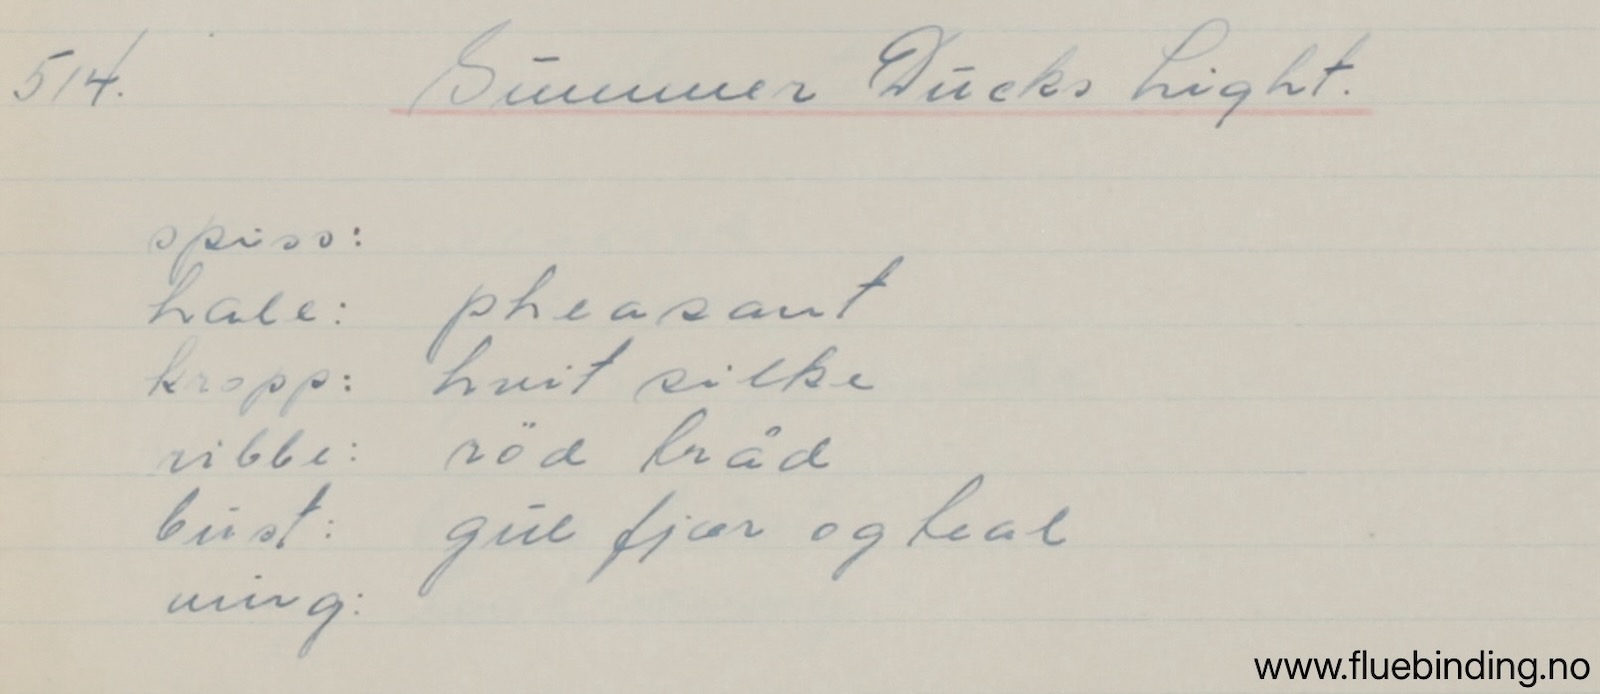 514. Summer Ducks Light.
spiss:
hale: pheasant
kropp: hvit silke
ribbe: röd tråd
bust: gul fjær og teal
ving:
www.fluebinding.no